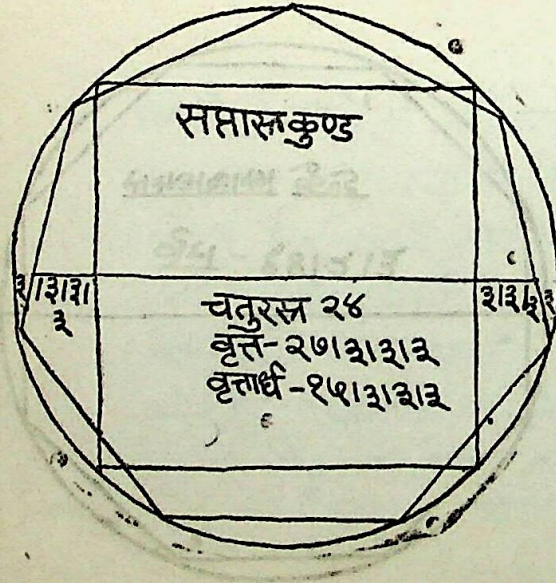 सप्तास्रकुण्ड
३|३|३|
३
३|३|३|३
चतुरस्र २४
वृत्त-२७|३|३|३
वृत्तार्ध-१५|३|३|३